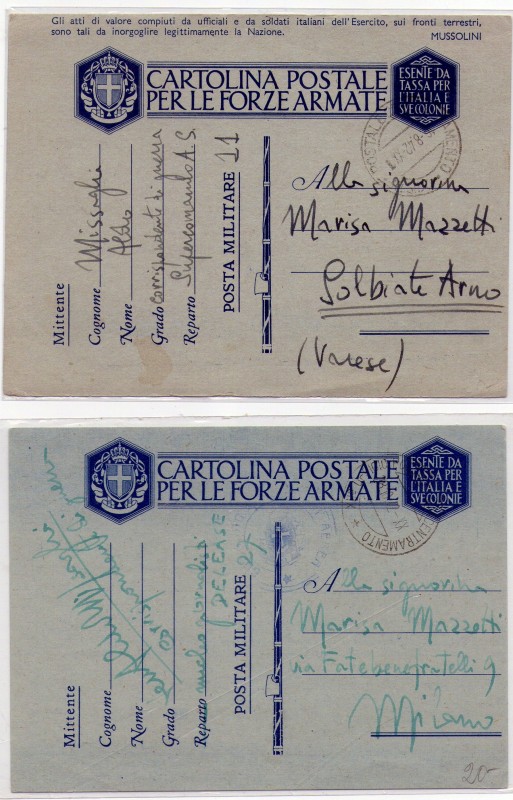 Gli atti di valore compiuti da ufficiali e da soldati italiani dell'Esercito, sui fronti terrestri,
sono tali da inorgoglire legittimamente la Nazione.
MUSSOLINI
CARTOLINA POSTALE
PER LE FORZE ARMATE
ESENTE DA
TASSA PER
L'ITALIA E
SVE COLONIE
Mittente
Cognome Missaglia
Nome Aldo
Grado Corrispondente di guerra
Reparto Supercomando A.S.
POSTA MILITARE 11
Alla signorina
Marisa Mazzetti
Solbiate Arno
(Varese)
CARTOLINA POSTALE
PER LE FORZE ARMATE
ESENTE DA
TASSA PER
L'ITALIA E
SVE COLONIE
CENTRAMENTO
Mittente
Cognome
Nome
Grado
Reparto nucleo giornalisti
POSTA MILITARE
Alla signorina
Marisa Mazzetti
via Fatebenefratelli 9
Milano
20-